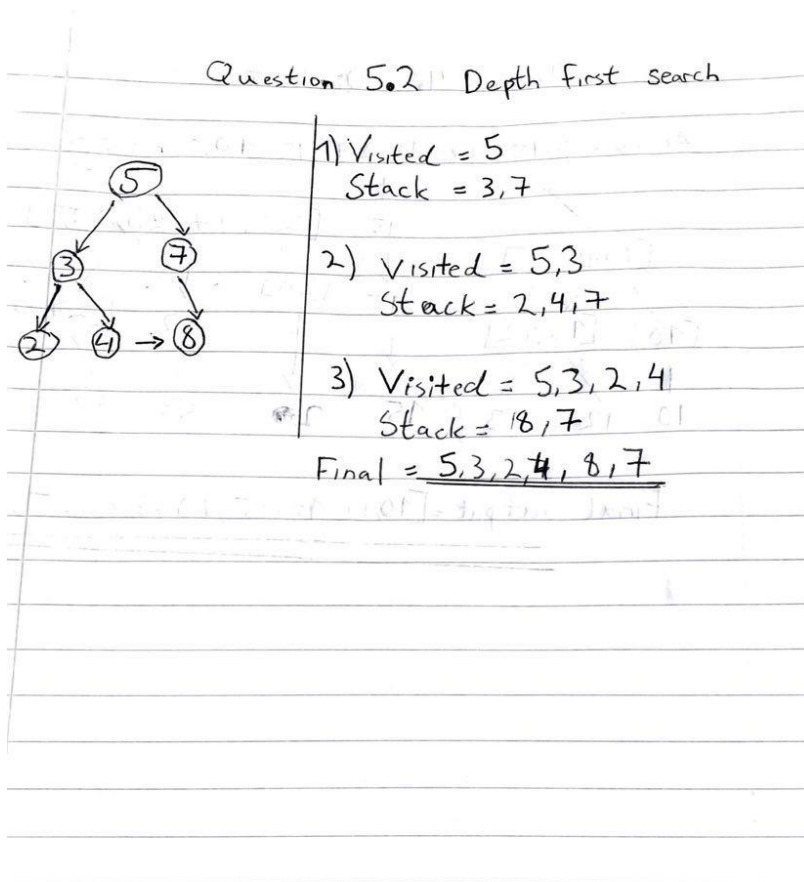 Question 5.2 Depth first search
5
3 7
2 4 → 8
1) Visited = 5
Stack = 3,7
2) Visited = 5,3
Stack = 2,4,7
3) Visited = 5,3,2,4
Stack = 8,7
Final = 5,3,2,4,8,7